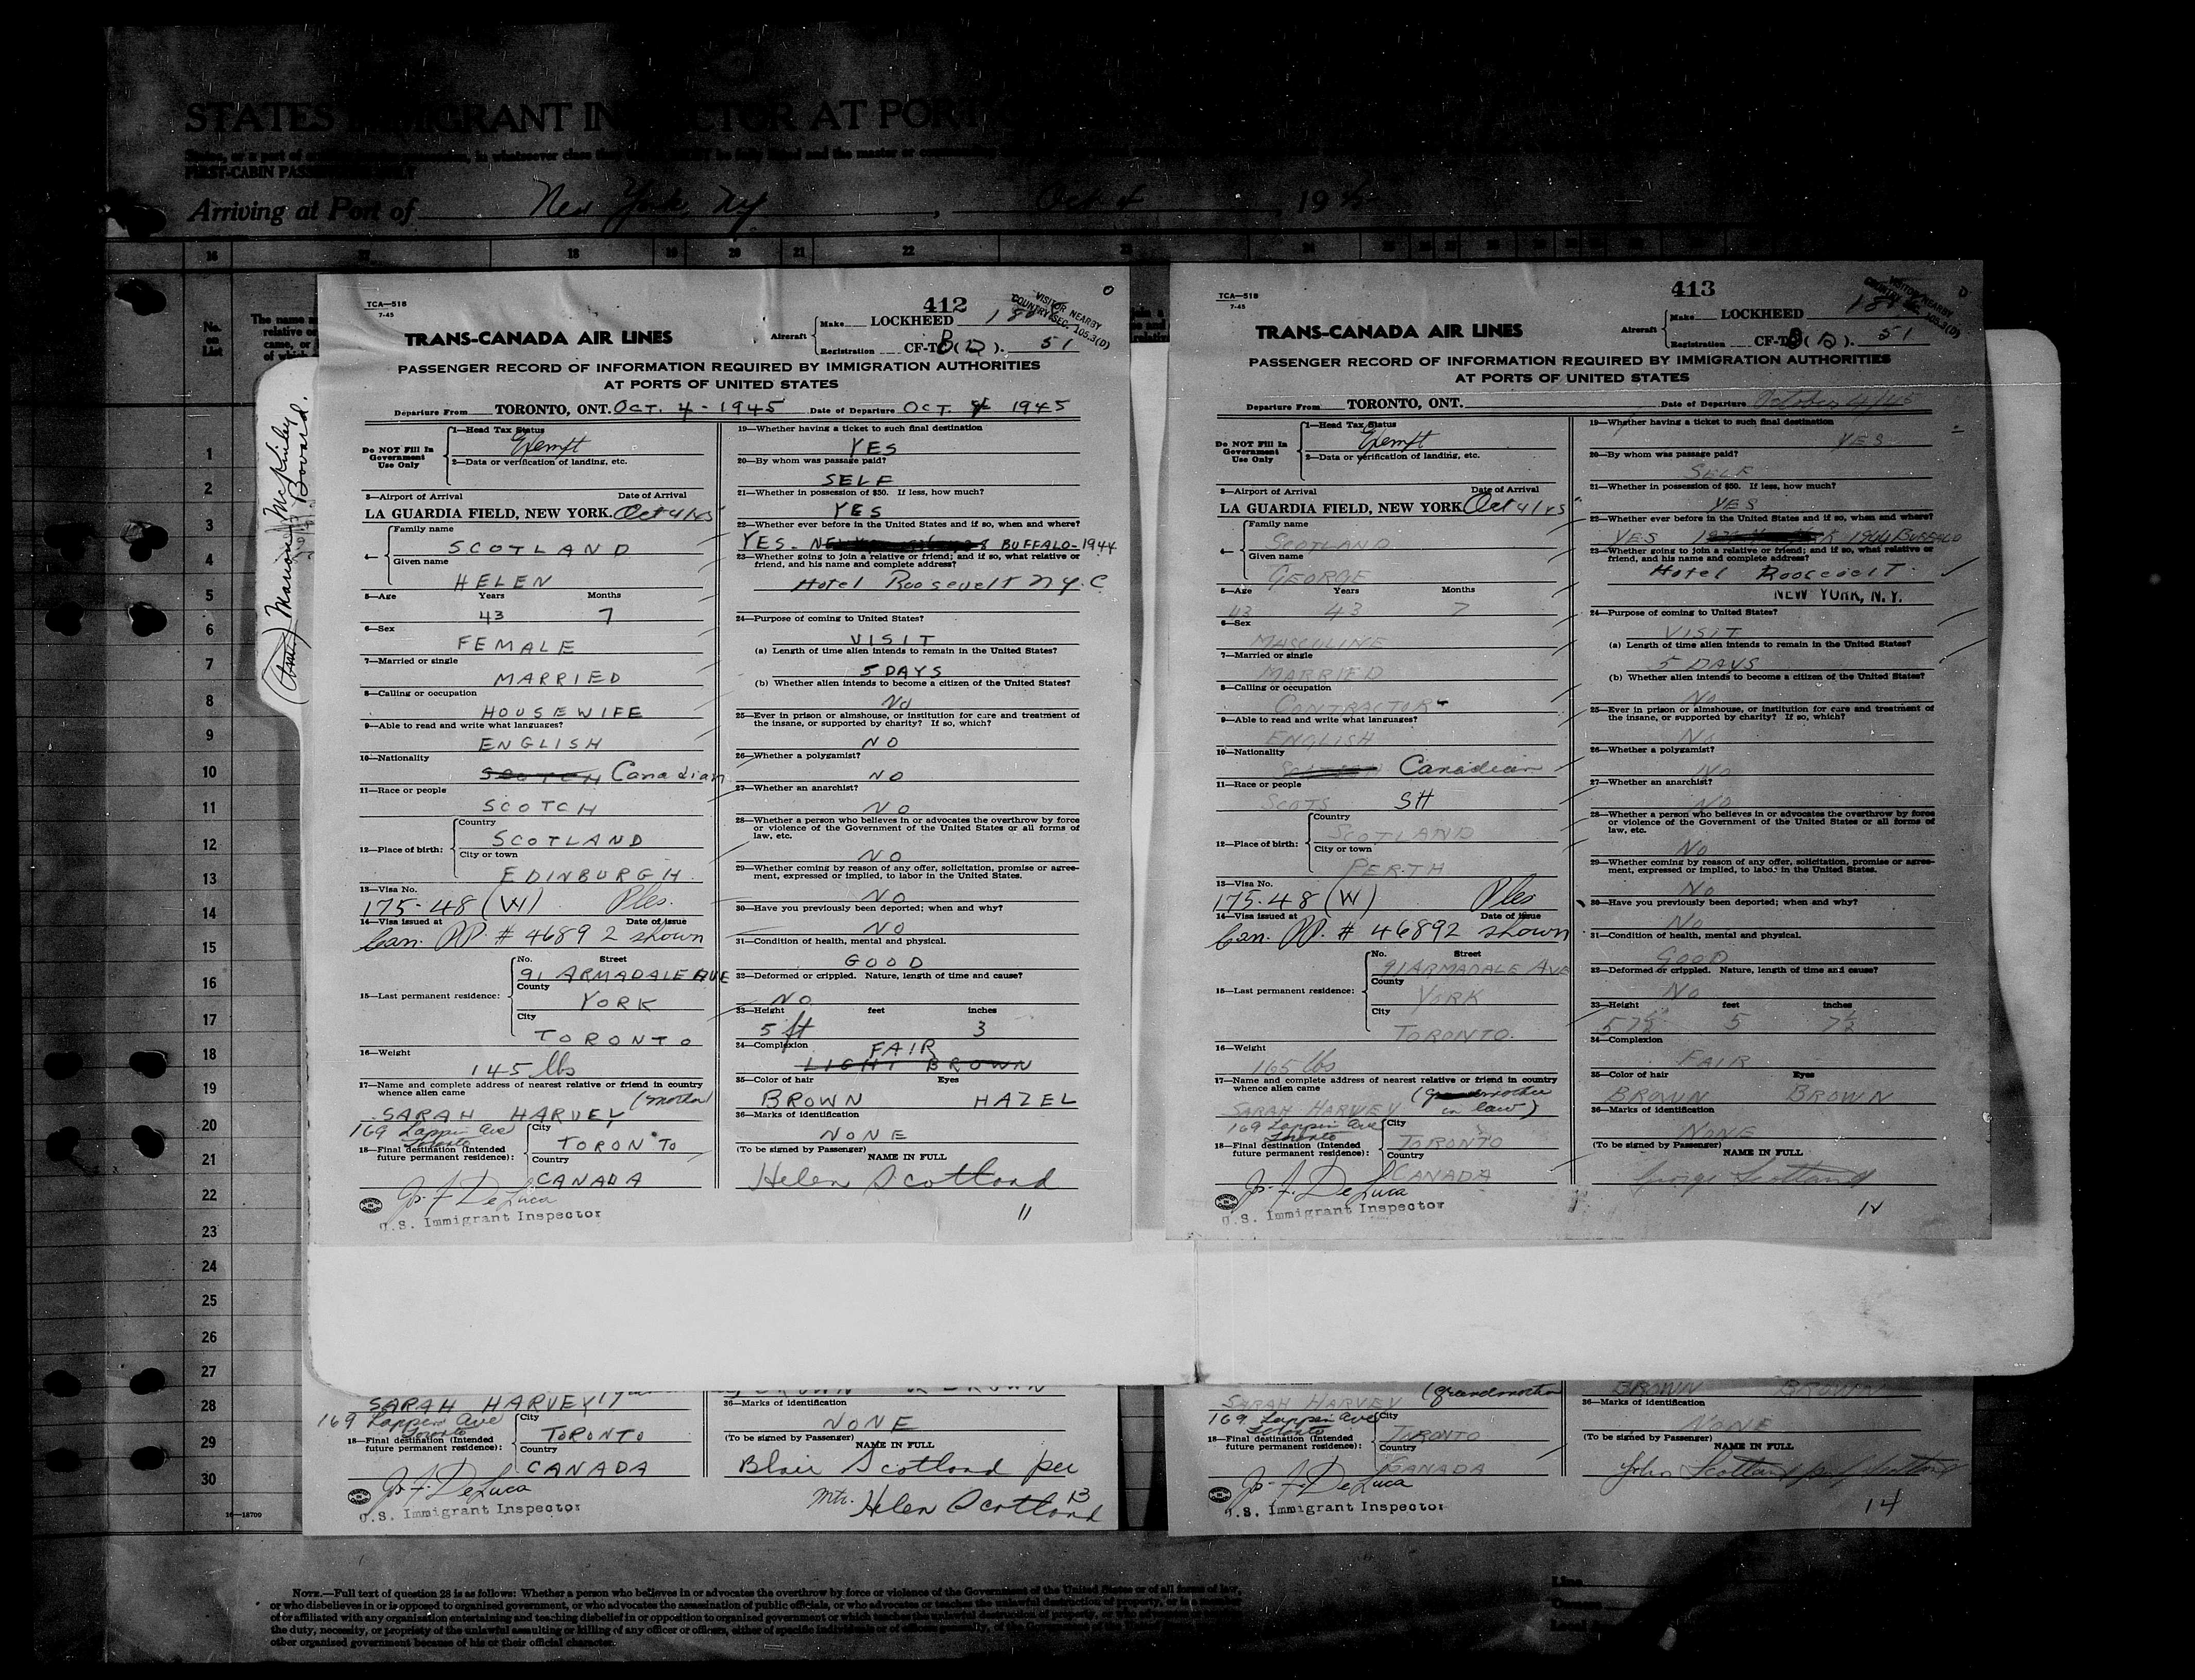 STATES IMMIGRANT INSPECTOR AT PORT
FIRST-CABIN PASSENGERS ONLY
Arriving at Port of New York, NY, Oct 4 194
16 17 18 19 20 21 22 23 24
No. on List
1
2
3
4
5
6
7
8
9
10
11
12
13
14
15
16
17
18
19
20
21
22
23
24
25
26
27
28
29
30
16—18700
Marion McKinley
Bovard.
TCA—518
7-45
412
VISITOR NEARBY
COUNTRY SEC. 105.3(D)
TRANS-CANADA AIR LINES
Aircraft
Make LOCKHEED 18
Registration CF-TC 51
PASSENGER RECORD OF INFORMATION REQUIRED BY IMMIGRATION AUTHORITIES
AT PORTS OF UNITED STATES
Departure From TORONTO, ONT. OCT. 4 - 1945 Date of Departure OCT 4 1945
Do NOT Fill In
Government
Use Only
1—Head Tax Status
Exempt
2—Data or verification of landing, etc.
3—Airport of Arrival Date of Arrival
LA GUARDIA FIELD, NEW YORK. Oct 4/45
4—
Family name
SCOTLAND
Given name
HELEN
5—Age Years Months
43 7
6—Sex
FEMALE
7—Married or single
MARRIED
8—Calling or occupation
HOUSEWIFE
9—Able to read and write what languages?
ENGLISH
10—Nationality
SCOTCH Canadian
11—Race or people
SCOTCH
12—Place of birth:
Country
SCOTLAND
City or town
EDINBURGH.
13—Visa No.
175-48 (W)
14—Visa issued at Date of issue
Can. PP. # 46892 shown
15—Last permanent residence:
No. Street
91 ARMADALE AVE
County
YORK
City
TORONTO
16—Weight
145 lbs
17—Name and complete address of nearest relative or friend in country
whence alien came
SARAH HARVEY (mother)
169 Lappin Ave
Toronto
18—Final destination (Intended
future permanent residence):
City
TORONTO
Country
CANADA
J. F. DeLuca
U.S. Immigrant Inspector
19—Whether having a ticket to such final destination
YES
20—By whom was passage paid?
SELF
21—Whether in possession of $50. If less, how much?
YES
22—Whether ever before in the United States and if so, when and where?
YES - BUFFALO-1944
23—Whether going to join a relative or friend; and if so, what relative or
friend, and his name and complete address?
Hotel Roosevelt N.Y.C
24—Purpose of coming to United States?
VISIT
(a) Length of time alien intends to remain in the United States?
5 DAYS
(b) Whether alien intends to become a citizen of the United States?
No
25—Ever in prison or almshouse, or institution for care and treatment of
the insane, or supported by charity? If so, which?
NO
26—Whether a polygamist?
NO
27—Whether an anarchist?
NO
28—Whether a person who believes in or advocates the overthrow by force
or violence of the Government of the United States or all forms of
law, etc.
NO
29—Whether coming by reason of any offer, solicitation, promise or agree-
ment, expressed or implied, to labor in the United States.
NO
30—Have you previously been deported; when and why?
NO
31—Condition of health, mental and physical.
GOOD
32—Deformed or crippled. Nature, length of time and cause?
NO
33—Height feet inches
5 ft 3
34—Complexion FAIR
LIGHT BROWN
35—Color of hair Eyes
BROWN HAZEL
36—Marks of identification
NONE
(To be signed by Passenger)
NAME IN FULL
Helen Scotland
11
TCA—518
7-45
413
VISITOR NEARBY
COUNTRY SEC. 105.3(D)
TRANS-CANADA AIR LINES
Aircraft
Make LOCKHEED 18
Registration CF-TC 51
PASSENGER RECORD OF INFORMATION REQUIRED BY IMMIGRATION AUTHORITIES
AT PORTS OF UNITED STATES
Departure From TORONTO, ONT. Date of Departure October 4/45
Do NOT Fill In
Government
Use Only
1—Head Tax Status
Exempt
2—Data or verification of landing, etc.
3—Airport of Arrival Date of Arrival
LA GUARDIA FIELD, NEW YORK. Oct 4/45
4—
Family name
SCOTLAND
Given name
GEORGE
5—Age Years Months
43 43 7
6—Sex
MASCULINE
7—Married or single
MARRIED
8—Calling or occupation
CONTRACTOR
9—Able to read and write what languages?
ENGLISH
10—Nationality
Canadian
11—Race or people
SCOTS SH
12—Place of birth:
Country
SCOTLAND
City or town
PERTH
13—Visa No.
175-48 (W)
14—Visa issued at Date of issue
Can. PP. # 46892 shown
15—Last permanent residence:
No. Street
91 ARMADALE AVE
County
YORK
City
TORONTO.
16—Weight
165 lbs
17—Name and complete address of nearest relative or friend in country
whence alien came
SARAH HARVEY in law)
169 Lappin Ave
Toronto
18—Final destination (Intended
future permanent residence):
City
TORONTO
Country
CANADA
J. F. DeLuca
U.S. Immigrant Inspector
19—Whether having a ticket to such final destination
YES
20—By whom was passage paid?
SELF
21—Whether in possession of $50. If less, how much?
YES
22—Whether ever before in the United States and if so, when and where?
YES 1944 BUFFALO
23—Whether going to join a relative or friend; and if so, what relative or
friend, and his name and complete address?
Hotel Roosevelt
NEW YORK, N.Y.
24—Purpose of coming to United States?
VISIT
(a) Length of time alien intends to remain in the United States?
5 DAYS
(b) Whether alien intends to become a citizen of the United States?
No
25—Ever in prison or almshouse, or institution for care and treatment of
the insane, or supported by charity? If so, which?
No
26—Whether a polygamist?
No
27—Whether an anarchist?
No
28—Whether a person who believes in or advocates the overthrow by force
or violence of the Government of the United States or all forms of
law, etc.
No
29—Whether coming by reason of any offer, solicitation, promise or agree-
ment, expressed or implied, to labor in the United States.
No
30—Have you previously been deported; when and why?
No
31—Condition of health, mental and physical.
GOOD
32—Deformed or crippled. Nature, length of time and cause?
No
33—Height feet inches
5 7½ 5 7½
34—Complexion
FAIR
35—Color of hair Eyes
BROWN BROWN
36—Marks of identification
NONE
(To be signed by Passenger)
NAME IN FULL
George Scotland
12
SARAH HARVEY
169 Lappin Ave
Toronto
18—Final destination (Intended
future permanent residence):
City
TORONTO
Country
CANADA
J. F. DeLuca
U.S. Immigrant Inspector
36—Marks of identification
NONE
(To be signed by Passenger)
NAME IN FULL
Blair Scotland per
Mtr. Helen Scotland
13
SARAH HARVEY (grandmother
169 Lappin Ave
Toronto
18—Final destination (Intended
future permanent residence):
City
TORONTO
Country
CANADA
J. F. DeLuca
U.S. Immigrant Inspector
BROWN BROWN
36—Marks of identification
NONE
(To be signed by Passenger)
NAME IN FULL
John Scotland
14
NOTE.—Full text of question 28 is as follows: Whether a person who believes in or advocates the overthrow by force or violence of the Government of the United States or of all forms of law,
or who disbelieves in or is opposed to organized government, or who advocates the assassination of public officials, or who advocates or teaches the unlawful destruction of property, or is a member
of or affiliated with any organization entertaining and teaching disbelief in or opposition to organized government or which teaches the unlawful destruction of property, or who advocates
the duty, necessity, or propriety of the unlawful assaulting or killing of any officer or officers, either of specific individuals or of officers generally, of the Government of the United States
other organized government because of his or their official character.